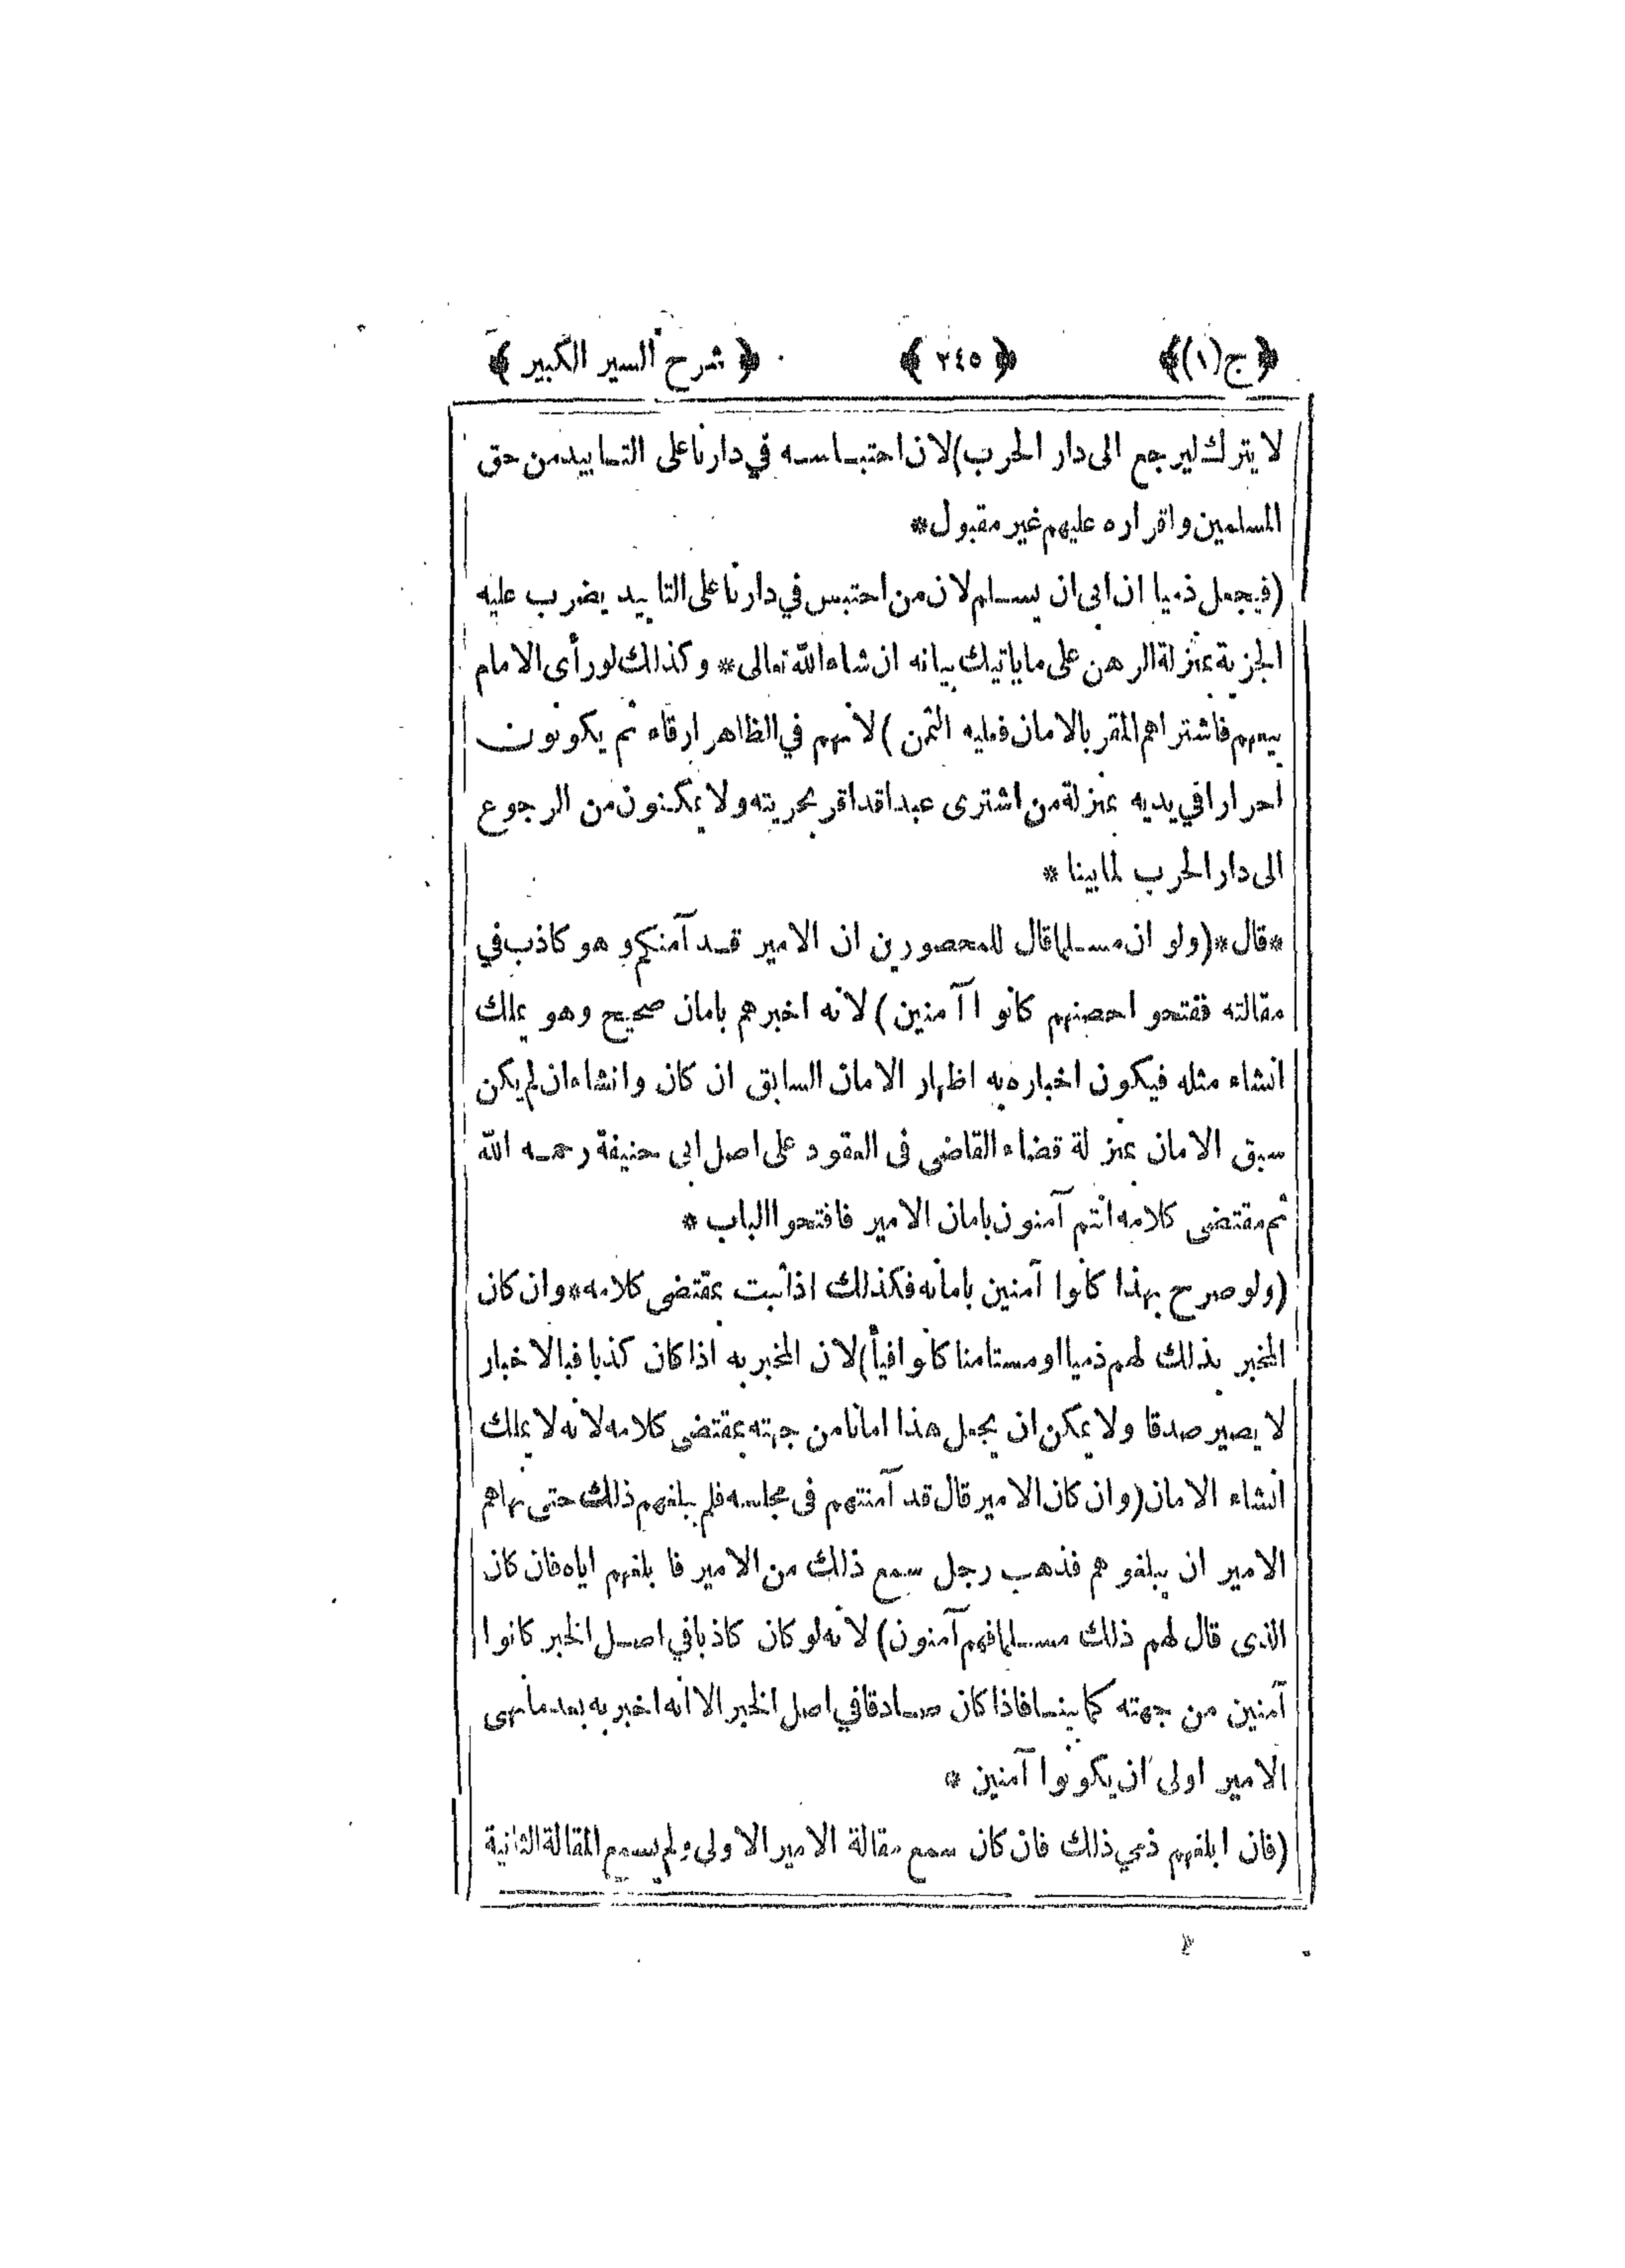 ﴿ ج(١)﴾ ﴿ ٢٤٥ ﴾ ﴿ شرح السير الكبير ﴾
لا يترك ليرجع الى دار الحرب) لان احتباسه في دارنا على التابيد من حق
المسلمين واقراره عليهم غير مقبول*
(فيجعل ذميا ان ابى ان يسلم لان من احتبس في دارنا على التابيد يضرب عليه
الجزية بمنزلة الرهن على ما ياتيك بيانه ان شاء الله تعالى* وكذلك لو رأى الامام
بيعهم فاشتراهم المقر بالامان فعليه الثمن) لانهم في الظاهر ارقاء ثم يكونون
احرارا في يديه بمنزلة من اشترى عبدا قد اقر بحريته ولا يمكنون من الرجوع
الى دار الحرب لما بينا *
*قال* (ولو ان مسلما قال للمحصورين ان الامير قد آمنكم وهو كاذب في
مقالته ففتحوا حصنهم كانوا آمنين) لانه اخبرهم بامان صحيح وهو يملك
انشاء مثله فيكون اخباره به اظهار الامان السابق ان كان وانشاء ان لم يكن
سبق الامان بمنزلة قضاء القاضى فى العقود على اصل ابى حنيفة رحمه الله
ثم مقتضى كلامه انتم آمنون بامان الامير فافتحوا الباب *
(ولو صرح بهذا كانوا آمنين بامانه فكذلك اذا ثبت بمقتضى كلامه* وان كان
المخبر بذلك لهم ذميا او مستامنا كانوا فيأ) لان المخبر به اذا كان كذبا فبالاخبار
لا يصير صدقا ولا يمكن ان يجعل هذا امانا من جهته بمقتضى كلامه لانه لا يملك
انشاء الامان (وان كان الامير قال قد آمنتهم فى مجلسه فلم يبلغهم ذلك حتى نهاهم
الامير ان يبلغوهم فذهب رجل سمع ذلك من الامير فابلغهم اياه فان كان
الذى قال لهم ذلك مسلما فهم آمنون) لانه لو كان كاذبا في اصل الخبر كانوا
آمنين من جهته كما بينا فاذا كان صادقا في اصل الخبر الا انه اخبر به بعد ما نهى
الامير اولى ان يكونوا آمنين *
(فان ابلغهم ذمي ذلك فان كان سمع مقالة الامير الاولى ولم يسمع المقالة الثانية